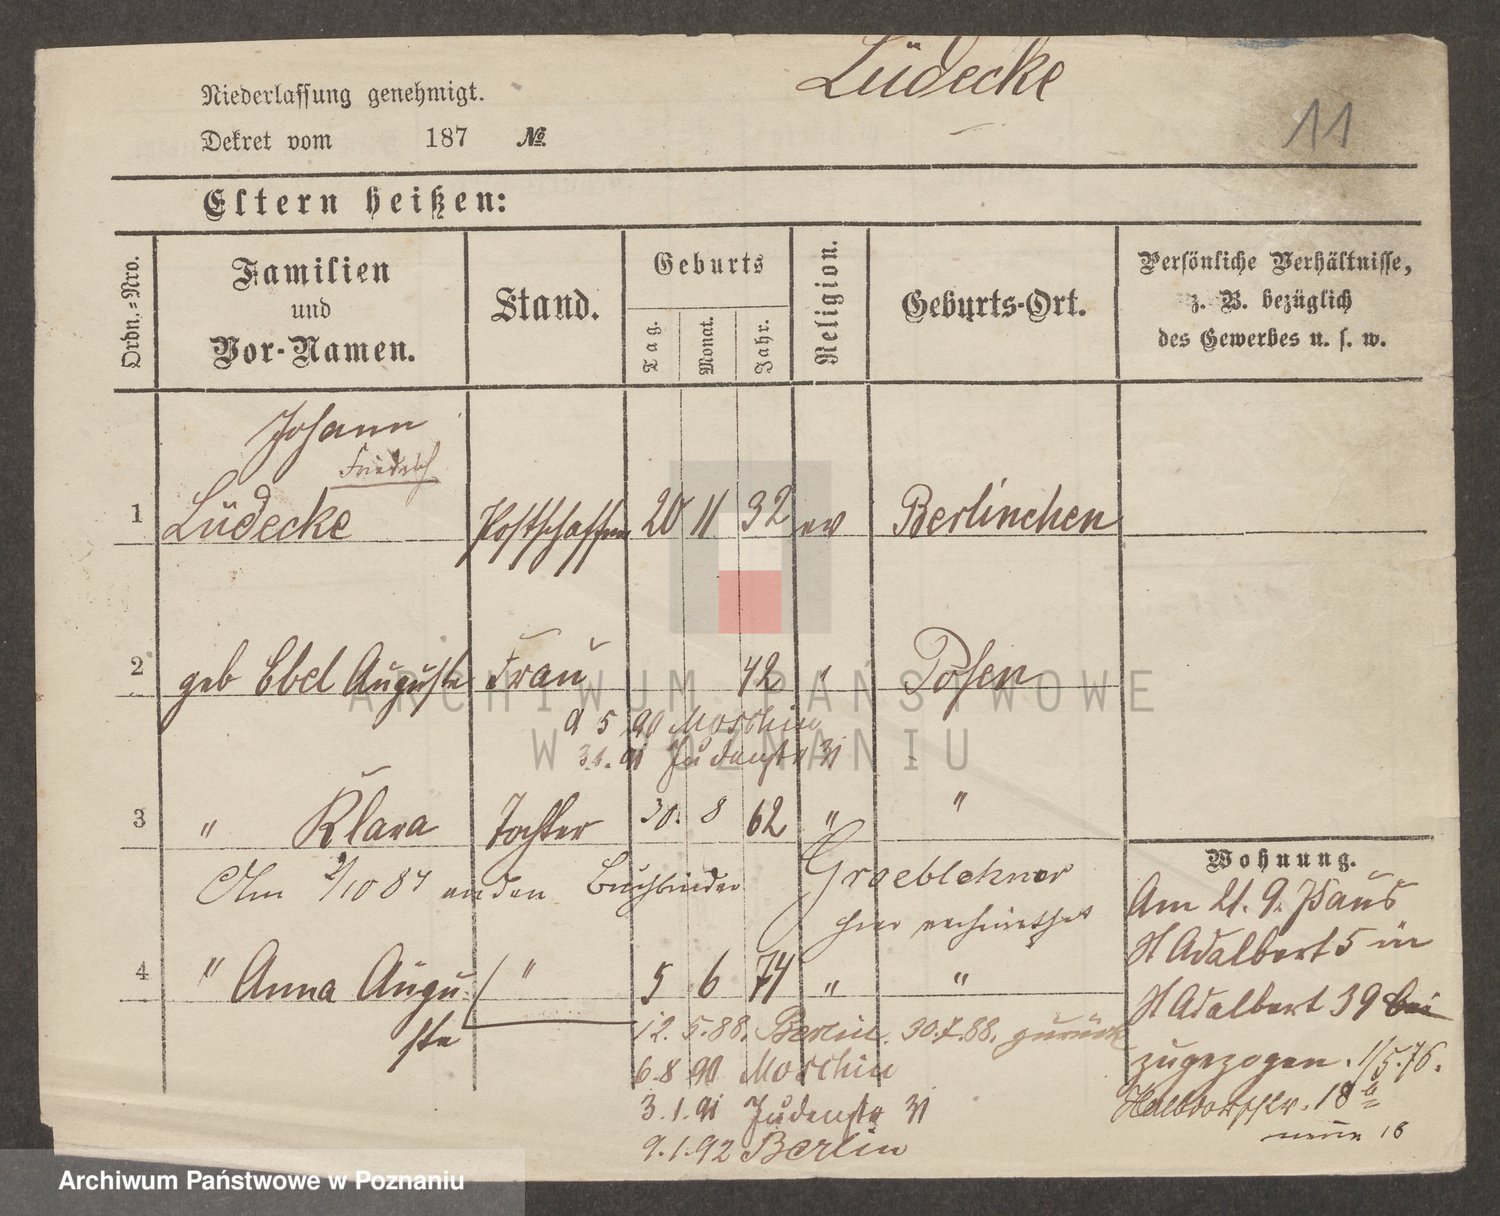 Lüdecke
11
Niederlassung genehmigt.
Dekret vom 187 №
Eltern heißen:
Ordn.-Nro.
Familien
und
Vor-Namen.
Stand.
Geburts
Tag.
Monat.
Jahr.
Religion.
Geburts-Ort.
Persönliche Verhältnisse,
z. B. bezüglich
des Gewerbes u. s. w.
Johann
Friedrich
1 Lüdecke Postschaffner 20 11 32 ev Berlinchen
2 geb Ebel Auguste Frau 42 " Posen
9 5 90 Moschin
3.1.91 Judenstr 31
3 " Klara Tochter 30. 8 62 " "
Am 2/10 84 an den Buchbinder Groeblehner
hier verheirathet
4 " Anna Augu- " 5 6 74 " "
ste
12.5.88. Berlin. 30.7.88. zurück
6.8 90 Moschin
3.1.91 Judenstr 31
9.1.92 Berlin
Wohnung.
Am 21. 9. aus
St Adalbert 5 in
St Adalbert 39 bei
zugezogen. 1/5.76.
Halbdorfstr. 18b
neue 18
ARCHIWUM PAŃSTWOWE
W POZNANIU
Archiwum Państwowe w Poznaniu